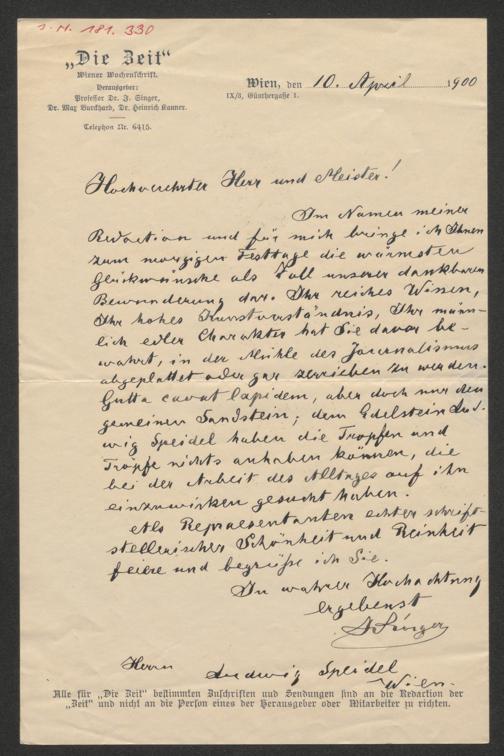 J.N. 181.330
„Die Zeit“
Wiener Wochenschrift.
Herausgeber:
Professor Dr. J. Singer,
Dr. Max Burckhard, Dr. Heinrich Kanner.
Telephon Nr. 6415.
Wien, den 10. April 1900
IX/3, Günthergasse 1.
Hochverehrter Herr und Meister!
Im Namen meiner
Redaction und für mich bringe ich Ihnen
zum morgigen Festtage die wärmsten
Glückwünsche als Zoll unserer dankbaren
Bewunderung dar. Ihr reiches Wissen,
Ihr hohes Kunstverständnis, Ihr männ-
lich edler Charakter hat Sie davor be-
wahrt, in der Mühle des Journalismus
abgeplattet oder gar zerrieben zu werden.
Gutta cavat lapidem, aber doch nur den
gemeinen Sandstein; dem Edelstein Lud-
wig Speidel haben die Tropfen und
Tröpfe nichts anhaben können, die
bei der Arbeit des Alltages auf ihn
einzuwirken gesucht haben.
Als Repraesentanten echter schrift-
stellerischer Schönheit und Reinheit
feiere und begrüße ich Sie.
In wahrer Hochachtung
ergebenst
J Singer
Herrn Ludwig Speidel
Wien.
Alle für „Die Zeit“ bestimmten Zuschriften und Sendungen sind an die Redaction der
„Zeit“ und nicht an die Person eines der Herausgeber oder Mitarbeiter zu richten.